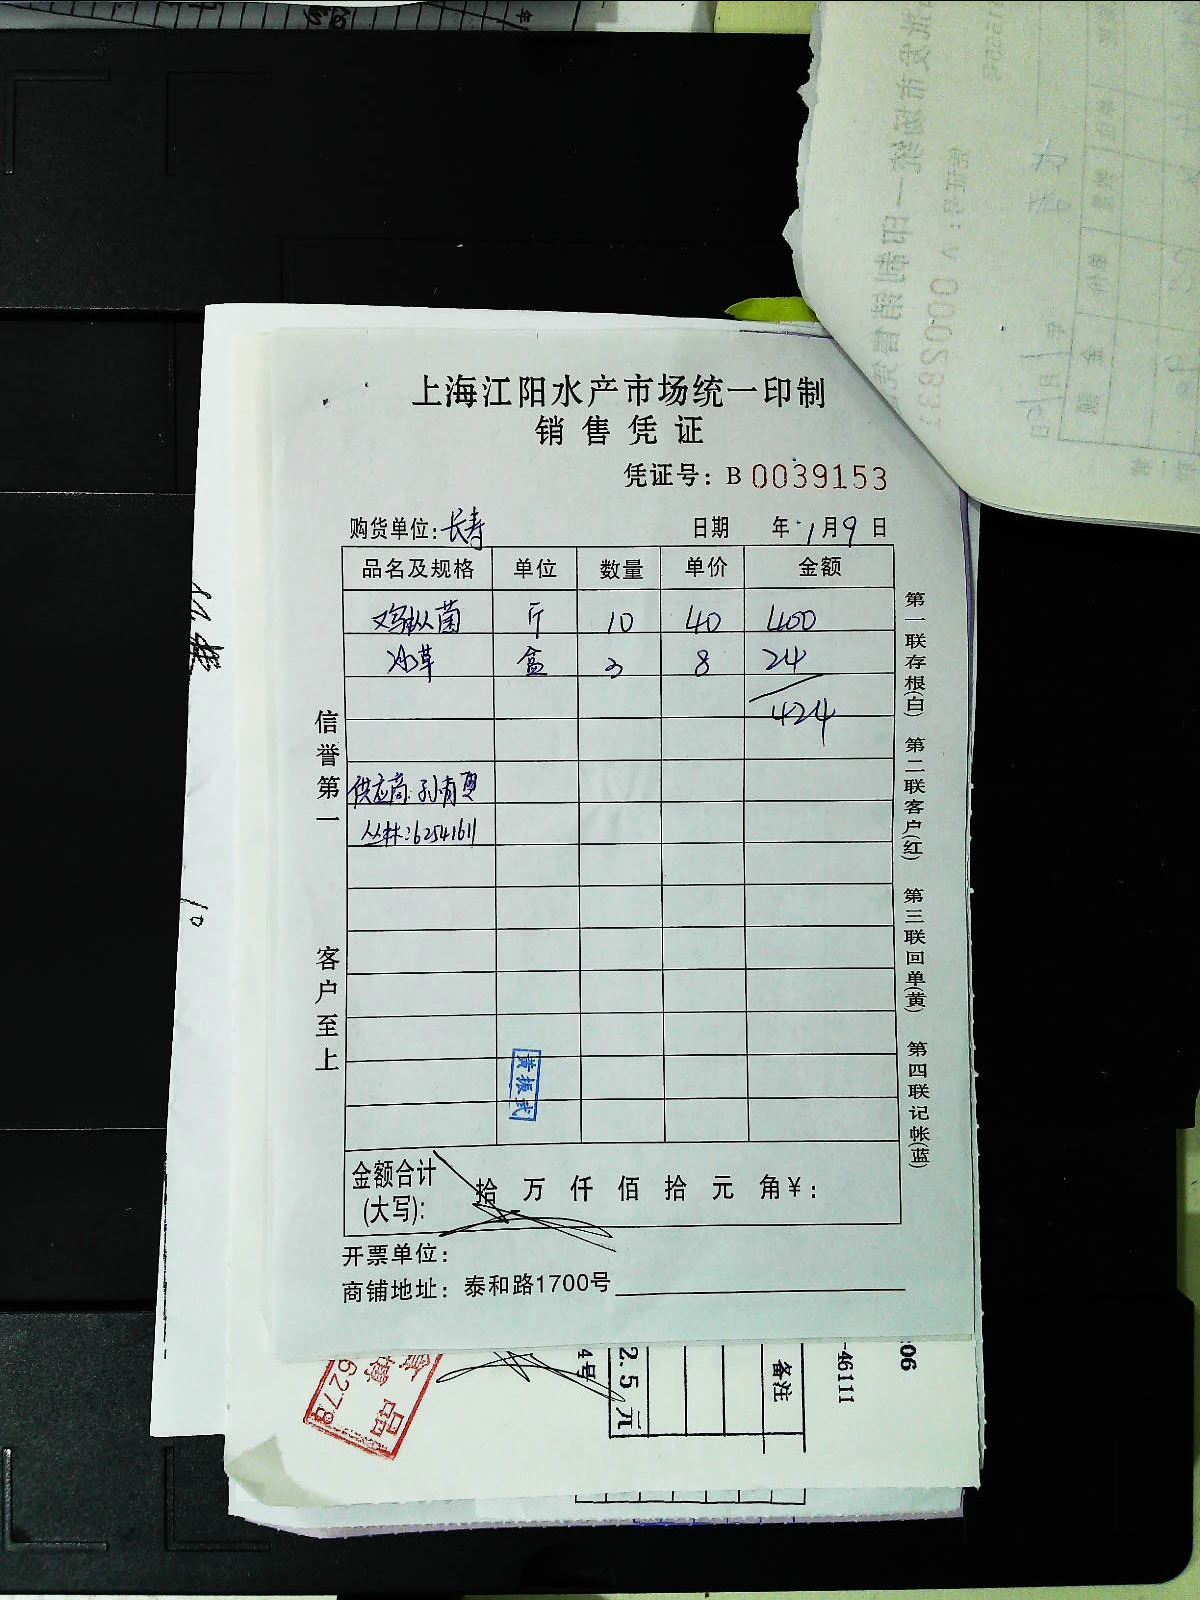 上海江阳水产市场统一印制
销售凭证
凭证号: B 0039153
购货单位: 长寿 日期 年 1月9日
品名及规格 单位 数量 单价 金额
鸡枞菌 斤 10 40 400
冰草 盒 3 8 24
424
供应商: 孙青
丛林: 62541611
黄振武
金额合计(大写): 拾 万 仟 佰 拾 元 角 ¥:
开票单位:
商铺地址: 泰和路1700号
信誉第一
客户至上
第一联存根(白) 第二联客户(红) 第三联回单(黄) 第四联记帐(蓝)
品
6278
4号
2.5元
备注
-46111
:06